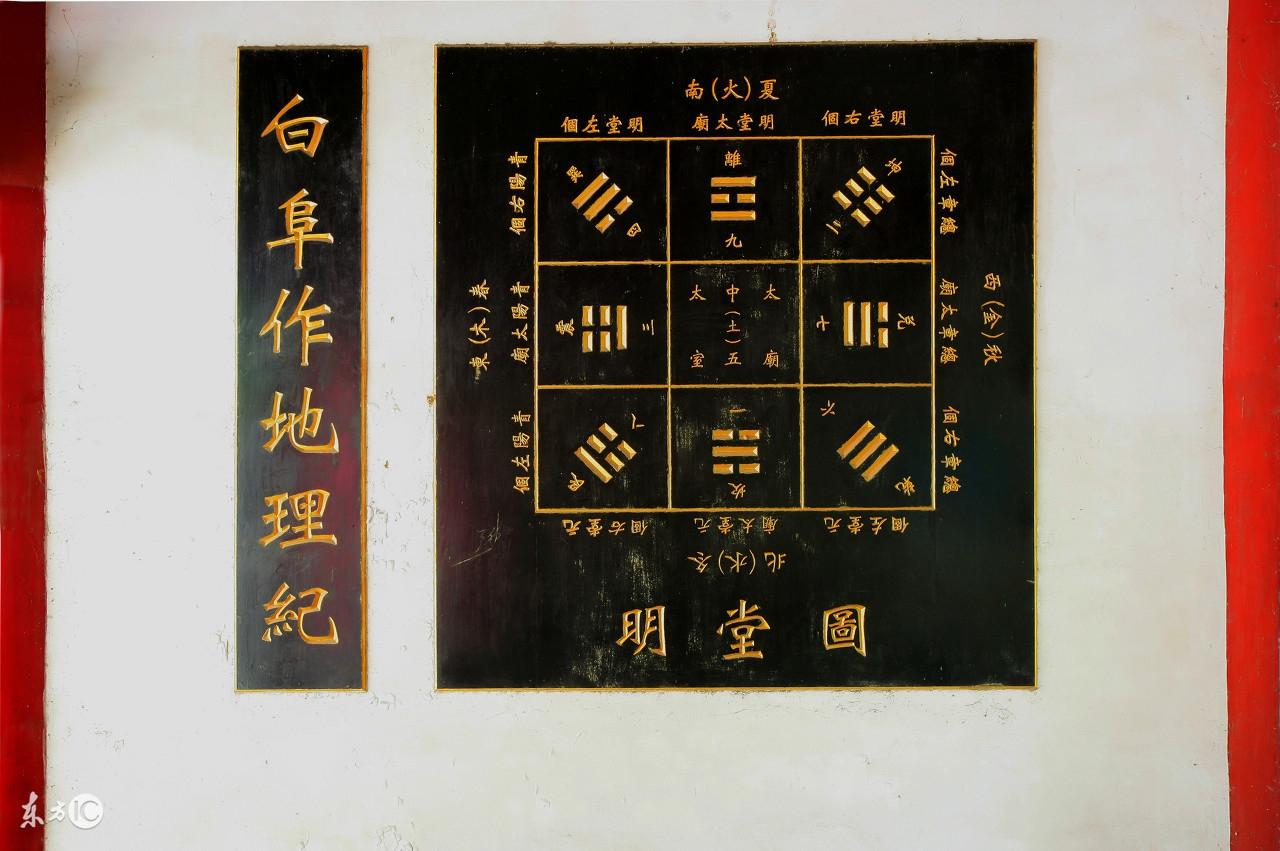 白阜作地理紀
夏(火)南
明堂左個
明堂太廟
明堂右個
青陽右個
青陽太廟
青陽左個
春(木)東
總章左個
總章太廟
總章右個
秋(金)西
巽 四
離 九
坤 二
震 三
太廟
中(土)五
太室
兌 七
艮 八
坎 一
乾 六
元堂右個
元堂太廟
元堂左個
冬(水)北
明堂圖
东方IC